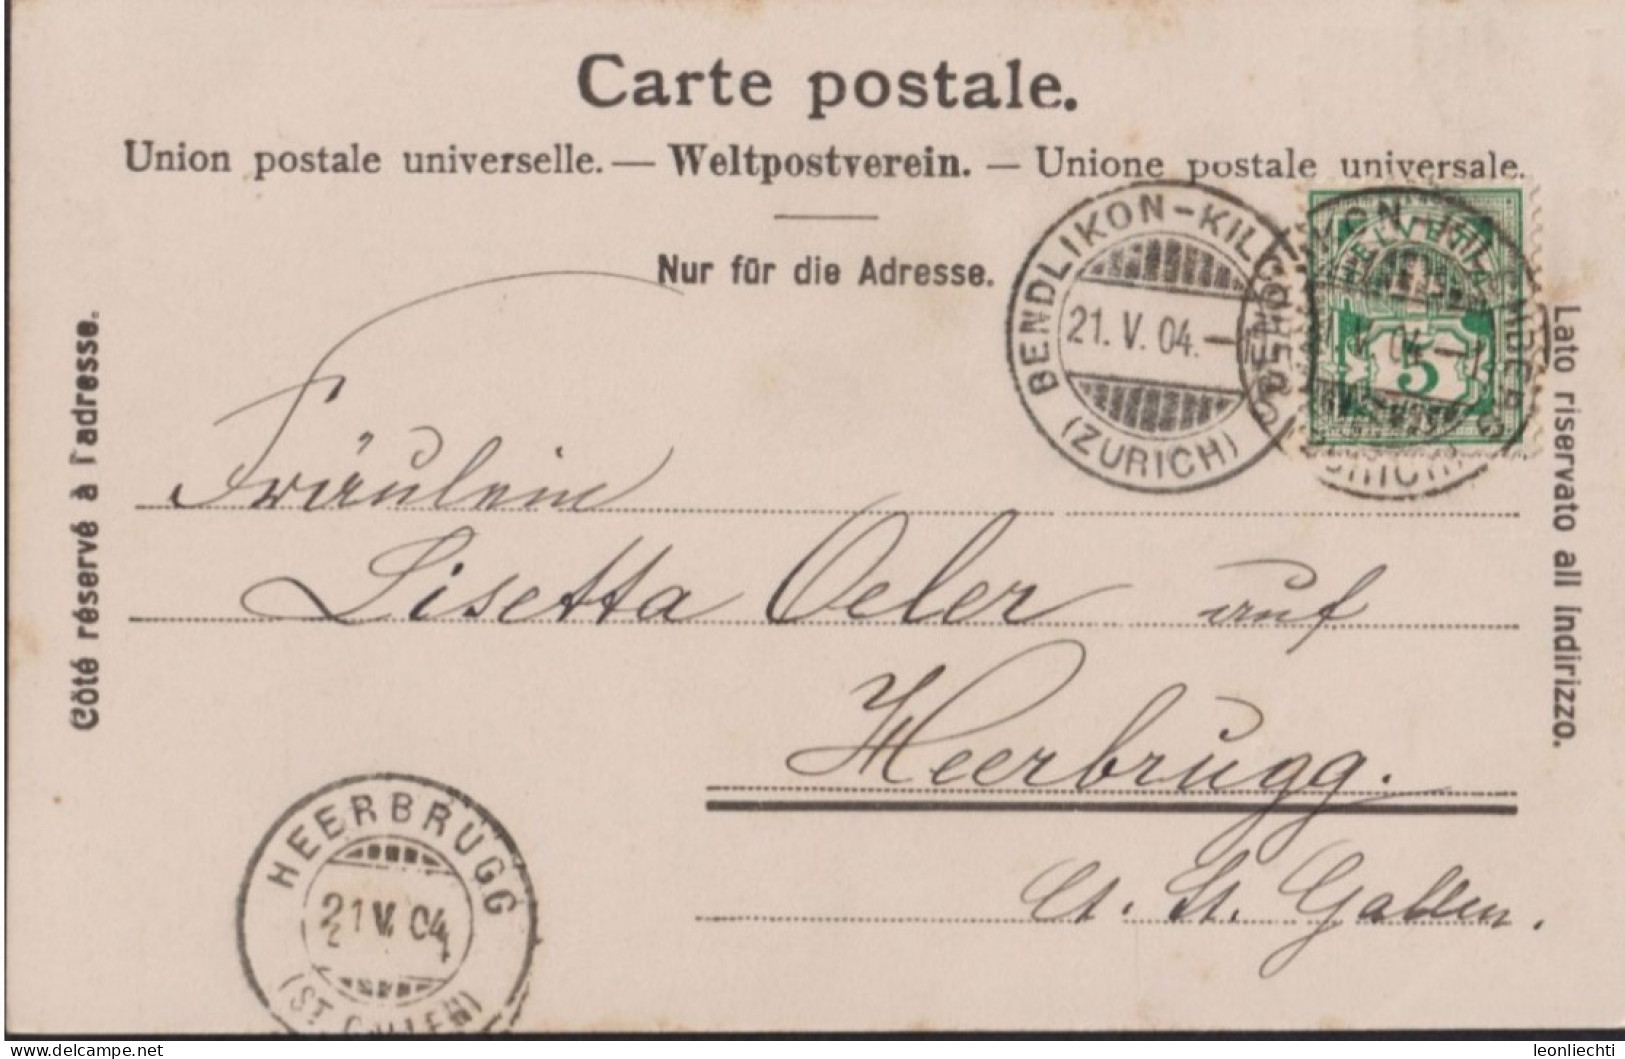 Carte postale.
Union postale universelle. — Weltpostverein. — Unione postale universale.
Nur für die Adresse.
Côté réservé à l'adresse.
BENDLIKON-KILCHBERG
21. V. 04.-
(ZURICH)
HELVETIA
5
Lato riservato all indirizzo.
Fräulein
Lisetta Oeler auf
Heerbrugg.
Ct. St. Gallen.
HEERBRUGG
21 V. 04
(ST. GALLEN)
leonliechti